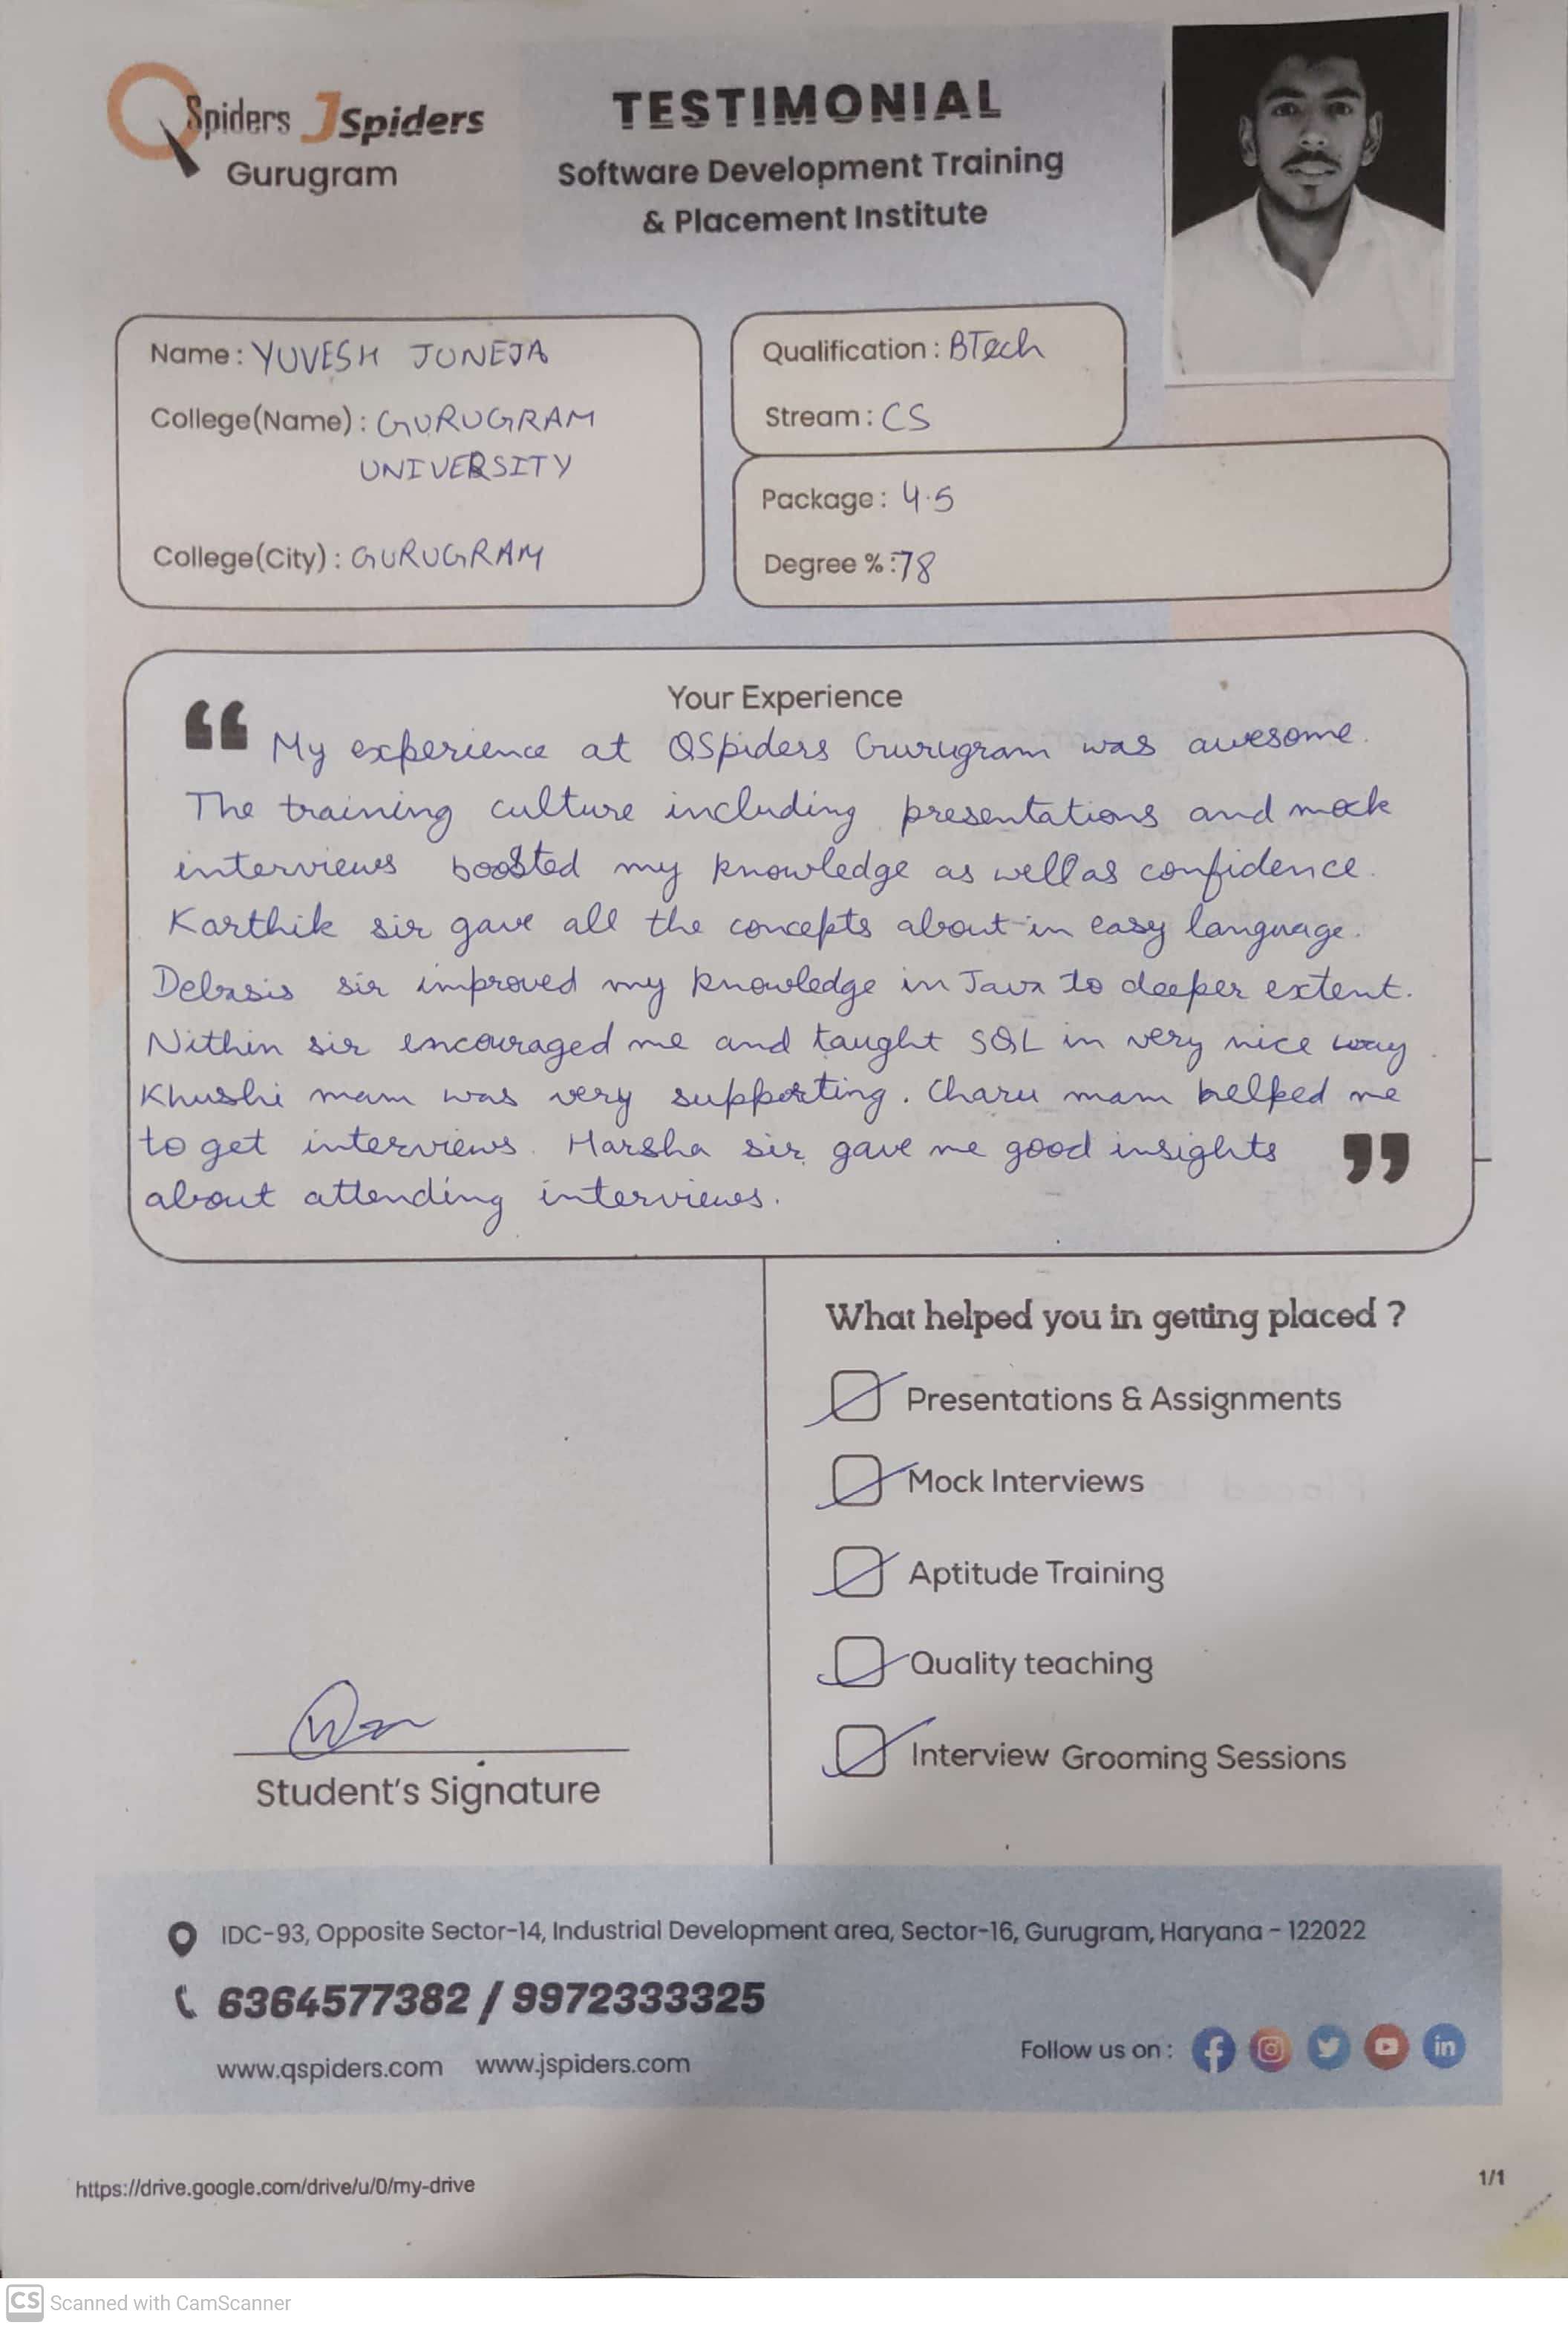 QSpiders JSpiders
Gurugram
TESTIMONIAL
Software Development Training
& Placement Institute
Name : YUVESH JUNEJA
College(Name) : GURUGRAM
UNIVERSITY
College(City) : GURUGRAM
Qualification : BTech
Stream : CS
Package : 4.5
Degree % : 78
Your Experience
“ My experience at QSpiders Gurugram was awesome.
The training culture including presentations and mock
interviews boosted my knowledge as well as confidence.
Karthik sir gave all the concepts about in easy language.
Debasis sir improved my knowledge in Java to deeper extent.
Nithin sir encouraged me and taught SQL in very nice way.
Khushi mam was very supporting. Charu mam helped me
to get interviews. Harsha sir gave me good insights ”
about attending interviews.
What helped you in getting placed ?
Presentations & Assignments
Mock Interviews
Aptitude Training
Quality teaching
Interview Grooming Sessions
Student's Signature
IDC-93, Opposite Sector-14, Industrial Development area, Sector-16, Gurugram, Haryana - 122022
6364577382 / 9972333325
www.qspiders.com www.jspiders.com
Follow us on :
https://drive.google.com/drive/u/0/my-drive
1/1
CS Scanned with CamScanner